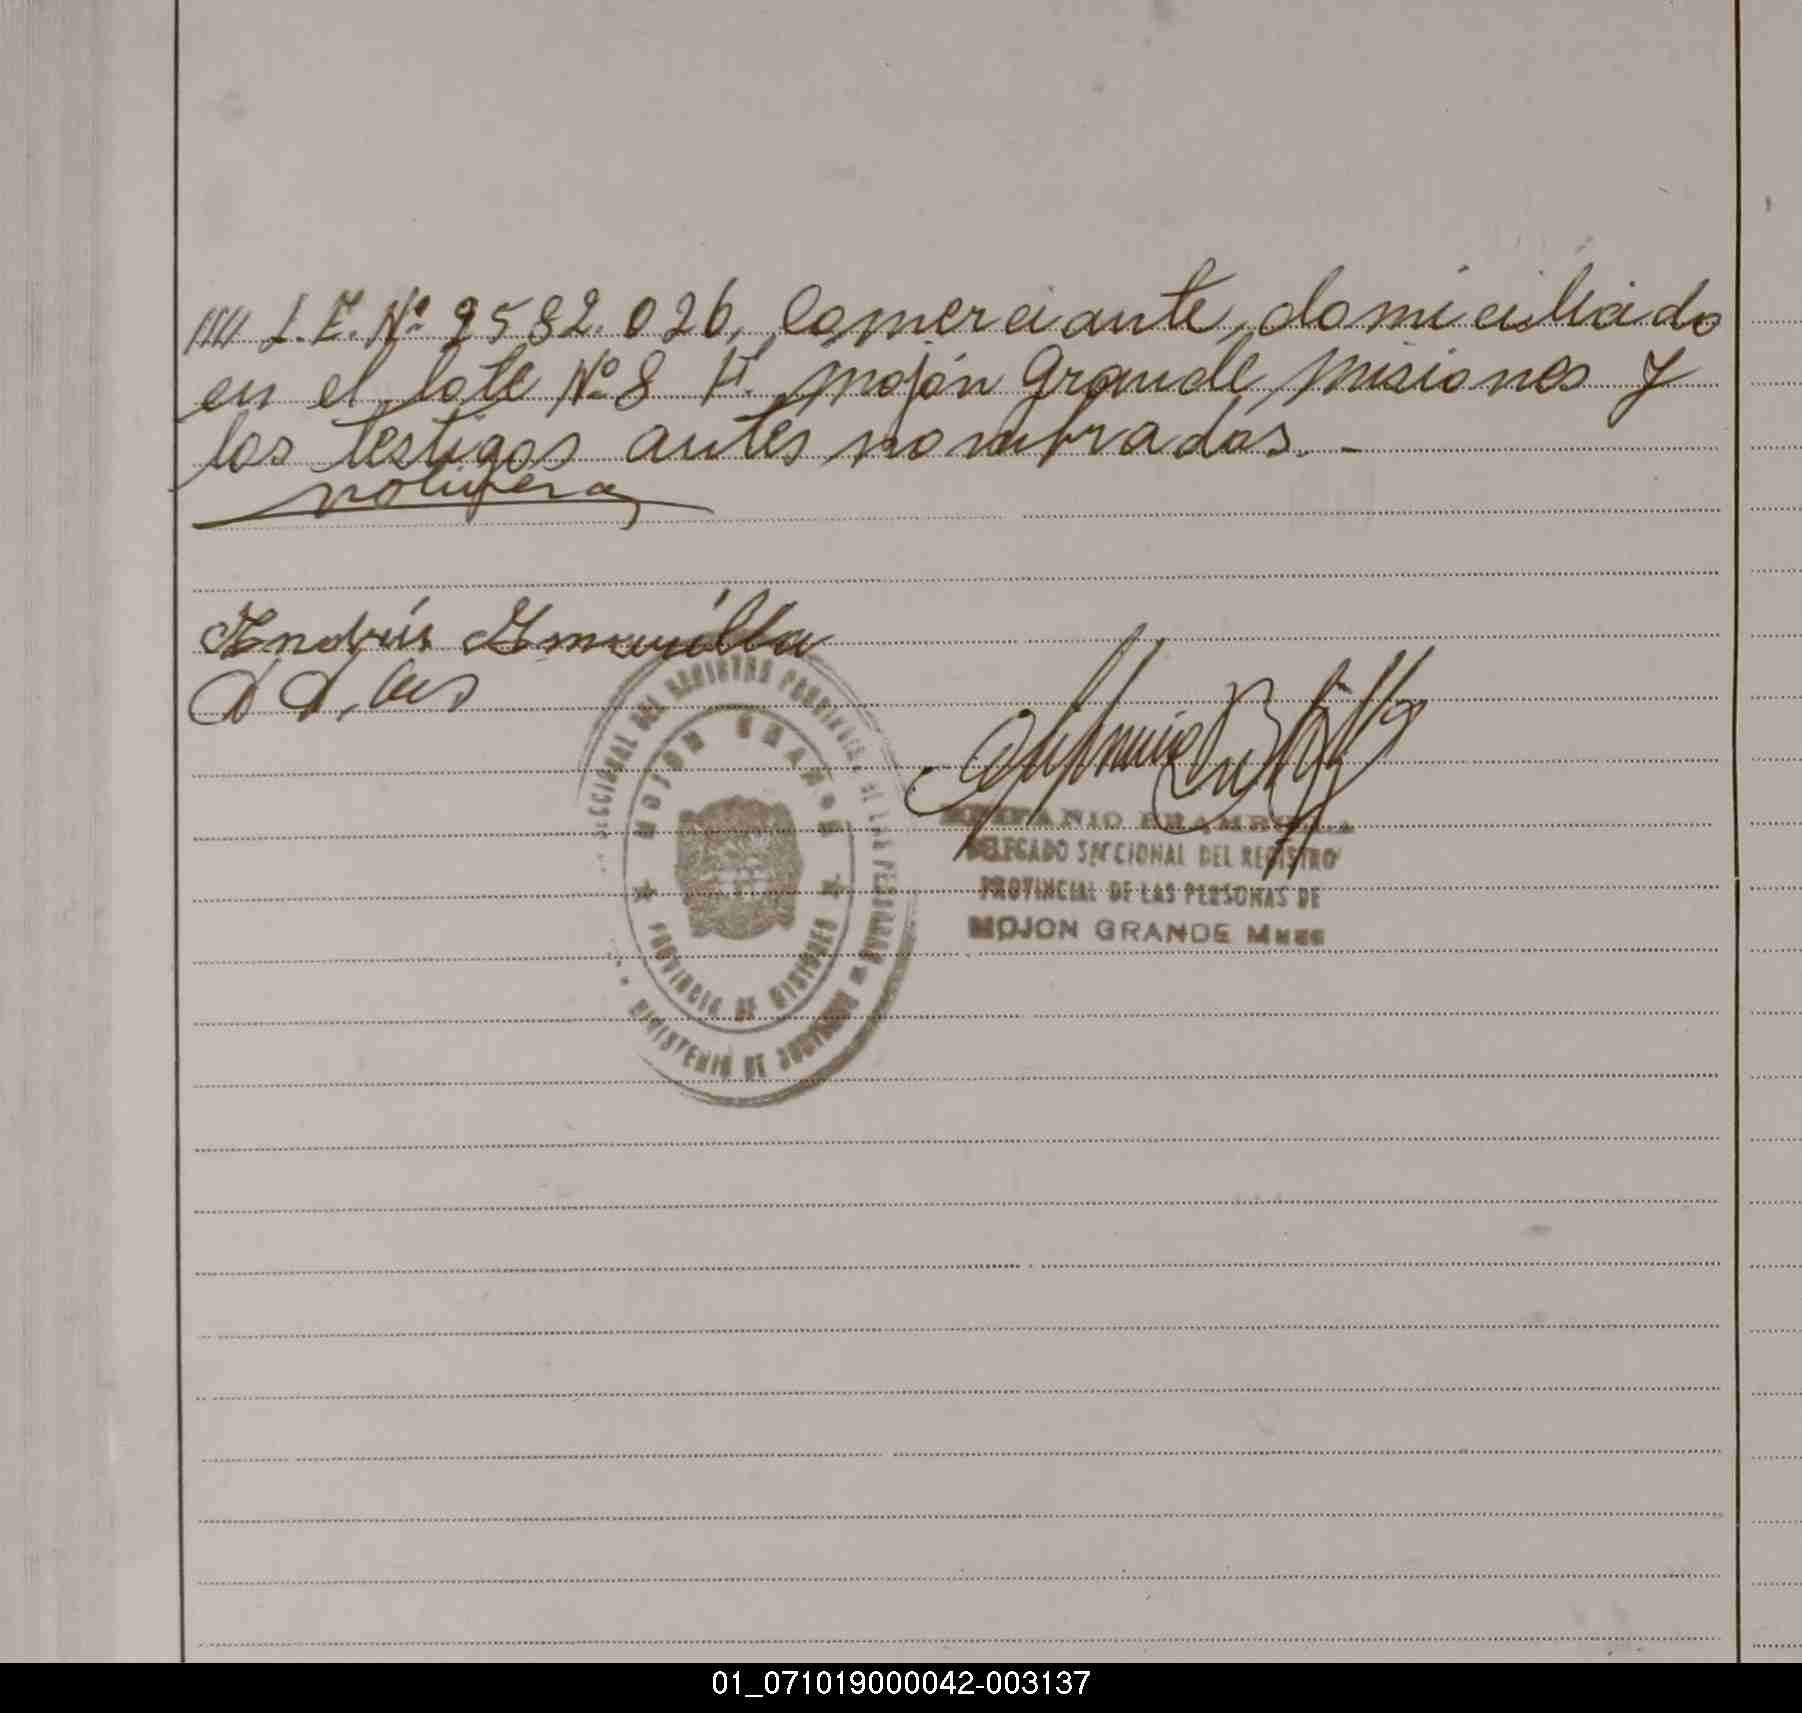 //// L.E. Nº 7582.026, Comerciante, domiciliado
en el lote Nº 8 A. Mojón Grande, Misiones y
los testigos antes nombrados.-
Andrés
SECCIONAL DEL REGISTRO PROVINCIAL DE LAS PERSONAS
MOJON GRANDE
PROVINCIA DE MISIONES
MINISTERIO DE GOBIERNO
EPIFANIO BRAMBILLA
DELEGADO SECCIONAL DEL REGISTRO
PROVINCIAL DE LAS PERSONAS DE
MOJON GRANDE Mnes
01_071019000042-003137